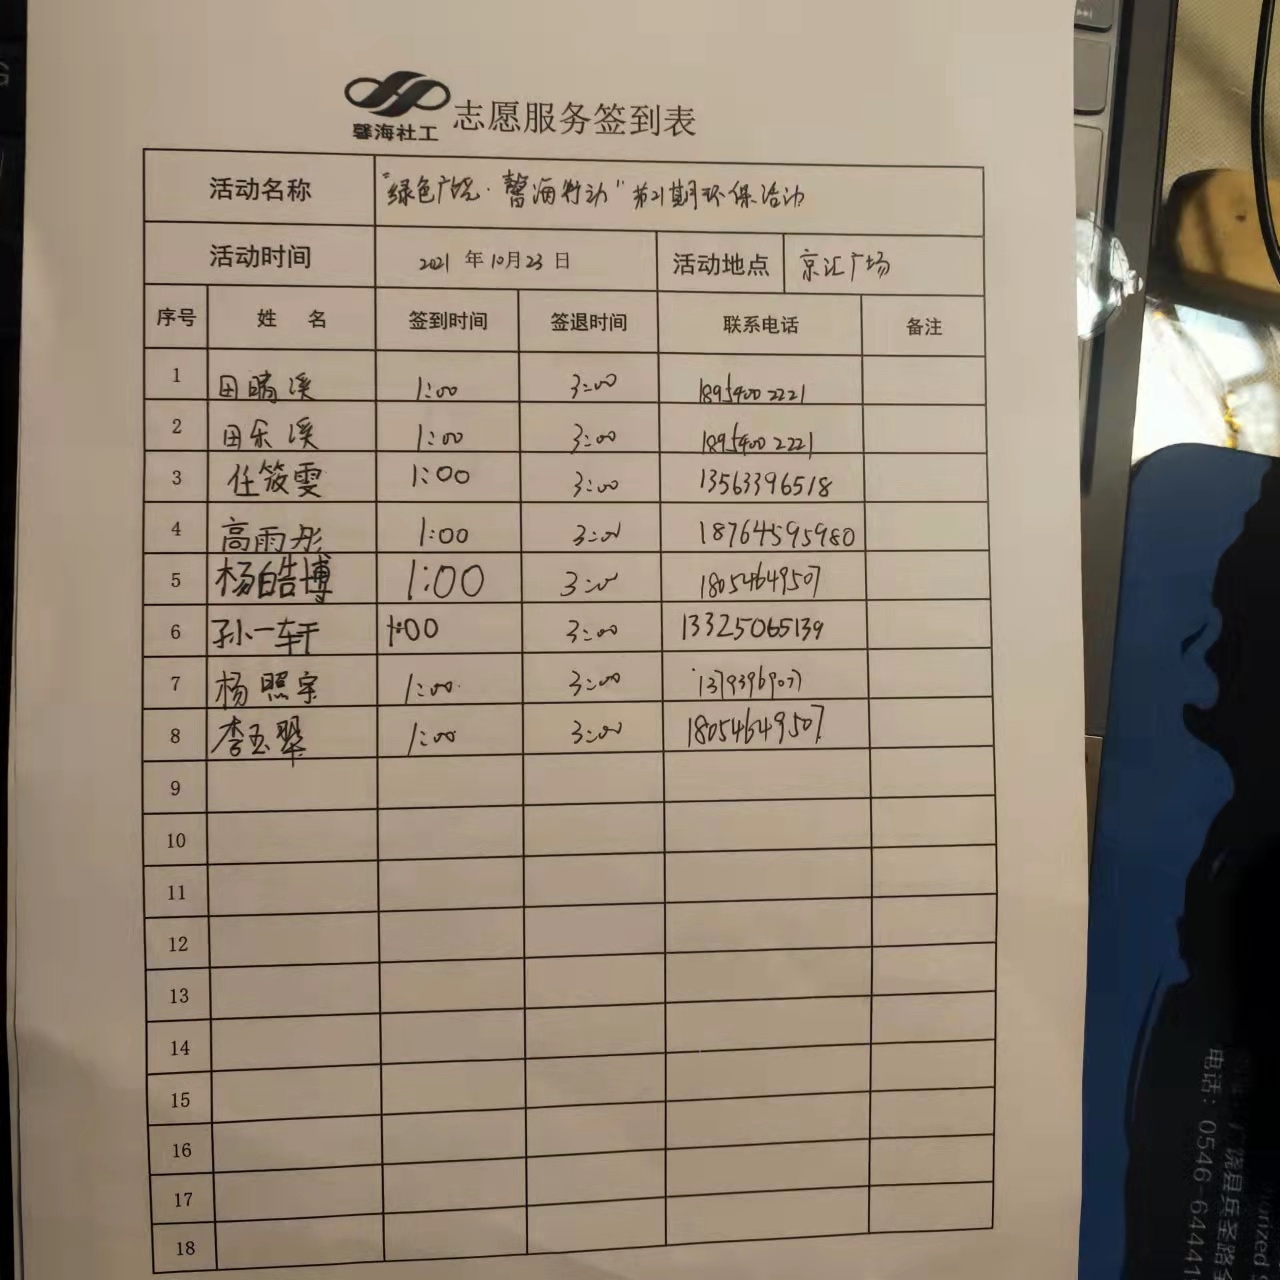 馨海社工 志愿服务签到表
活动名称 "绿色广饶·馨海行动"第21期环保活动
活动时间 2021 年 10月 23 日 活动地点 京汇广场
序号 姓 名 签到时间 签退时间 联系电话 备注
1 田晴溪 1:00 3:00 18954002221
2 田乐溪 1:00 3:00 18954002221
3 任筱雯 1:00 3:00 13563396518
4 高雨彤 1:00 3:00 18764595980
5 杨皓博 1:00 3:00 18054649507
6 孙一轩 1:00 3:00 13325065139
7 杨照宇 1:00 3:00 13793969077
8 李玉翠 1:00 3:00 18054649507
9
10
11
12
13
14
15
16
17
18
广饶县兵圣路
电话：0546-64441